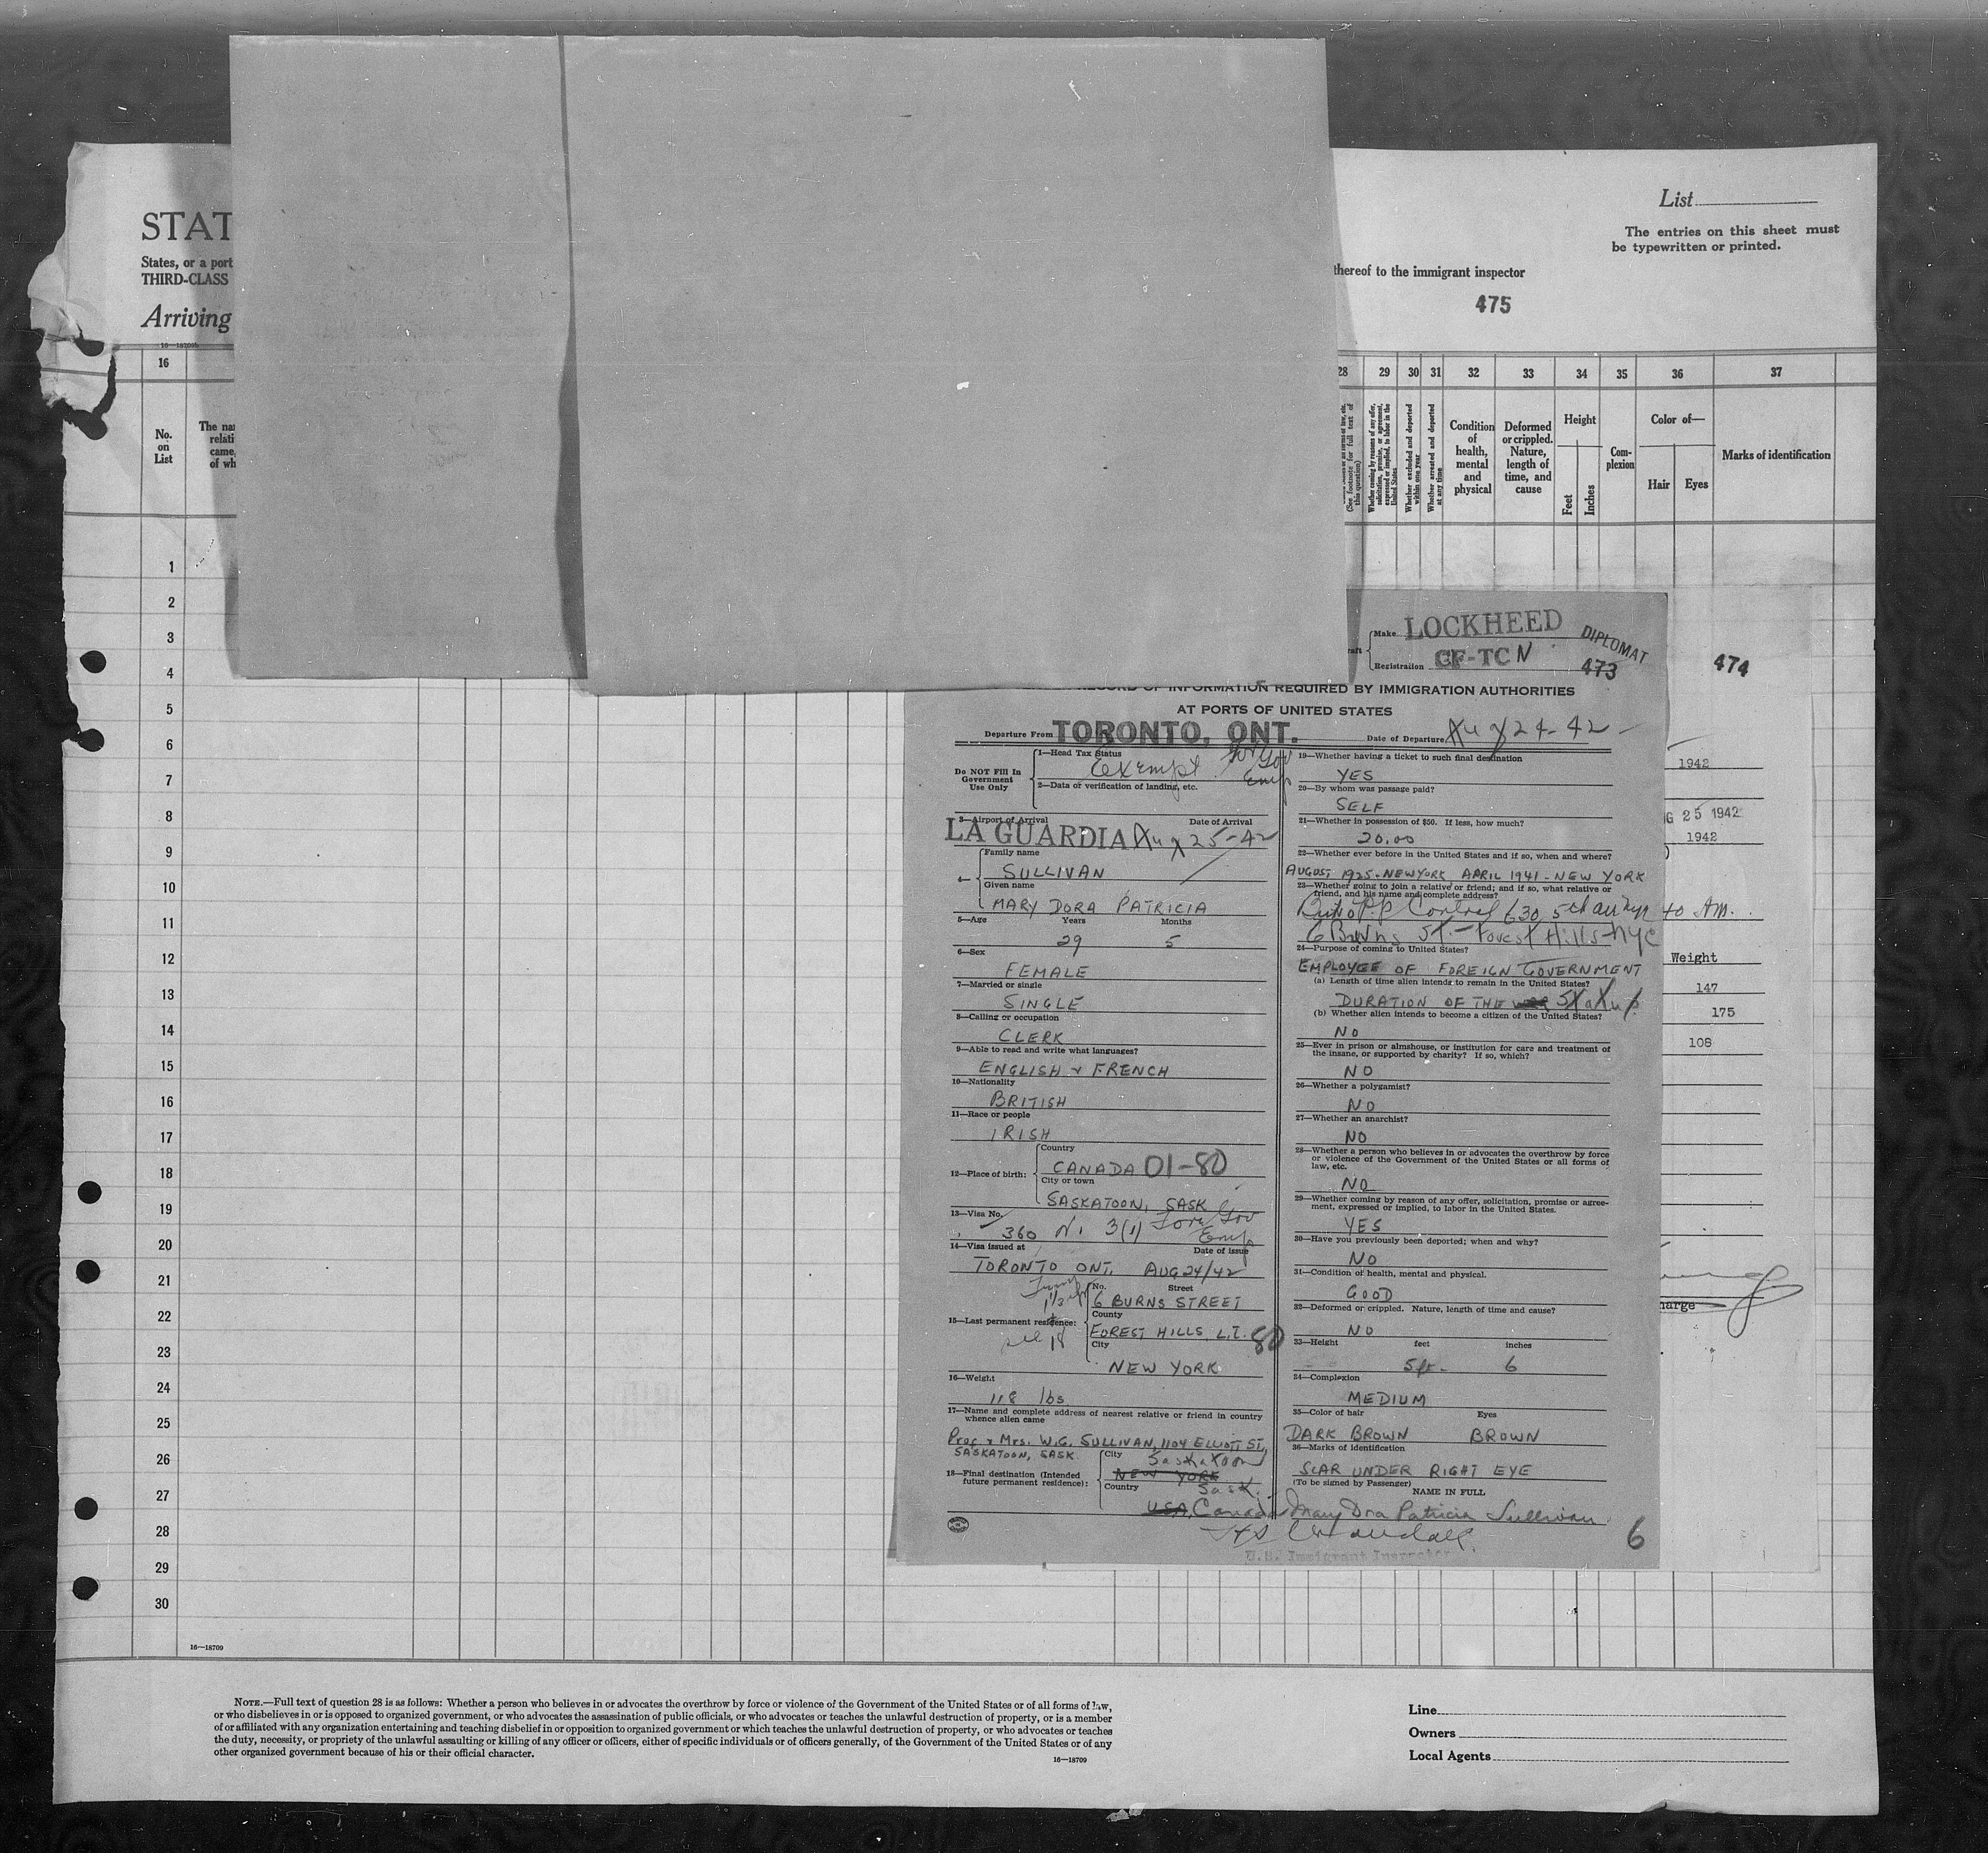 STAT
States, or a port
THIRD-CLASS
Arriving
List
The entries on this sheet must
be typewritten or printed.
thereof to the immigrant inspector
475
16
28 29 30 31 32 33 34 35 36 37
No.
on
List
The nar
relati
came,
of wh
(See footnote for full text of
this question)
Whether coming by reasons of any offer,
solicitation, promise, or agreement,
expressed or implied, to labor in the
United States
Whether excluded and deported
within one year
Whether arrested and deported
at any time
Condition
of
health,
mental
and
physical
Deformed
or crippled.
Nature,
length of
time, and
cause
Height
Feet
Inches
Com-
plexion
Color of—
Hair Eyes
Marks of identification
1
2
3
4
5
6
7
8
9
10
11
12
13
14
15
16
17
18
19
20
21
22
23
24
25
26
27
28
29
30
16—18709
Make LOCKHEED
DIPLOMAT
Registration CF-TC N
473
474
RECORD OF INFORMATION REQUIRED BY IMMIGRATION AUTHORITIES
AT PORTS OF UNITED STATES
Departure From TORONTO, ONT.
Date of Departure Aug 24-42-
Do NOT Fill In
Government
Use Only
1—Head Tax Status
Exempt Gov
Emp
2—Data or verification of landing, etc.
3—Airport of Arrival Date of Arrival
LA GUARDIA Aug 25-42
4— Family name
SULLIVAN
Given name
MARY DORA PATRICIA
5—Age Years Months
29 5
6—Sex
FEMALE
7—Married or single
SINGLE
8—Calling or occupation
CLERK
9—Able to read and write what languages?
ENGLISH & FRENCH
10—Nationality
BRITISH
11—Race or people
IRISH
12—Place of birth:
Country
CANADA 01-80
City or town
SASKATOON, SASK
13—Visa No.
360 3(1) Gov
Emp
14—Visa issued at Date of issue
TORONTO ONT. AUG 24/42
15—Last permanent residence:
No. Street
6 BURNS STREET
County
FOREST HILLS, L.I. 80
City
NEW YORK
16—Weight
118 lbs
17—Name and complete address of nearest relative or friend in country
whence alien came
Prof & Mrs. W.G. SULLIVAN, 1104 ELLIOTT ST,
SASKATOON, SASK
18—Final destination (Intended
future permanent residence):
City Saskatoon
NEW YORK
Country Sask.
USA Canada
19—Whether having a ticket to such final destination
YES
20—By whom was passage paid?
SELF
21—Whether in possession of $50. If less, how much?
20.00
22—Whether ever before in the United States and if so, when and where?
AUGUST 1925-NEW YORK APRIL 1941-NEW YORK
23—Whether going to join a relative or friend; and if so, what relative or
friend, and his name and complete address?
P.P. Control 630 5th
6 Burns St.- Forest Hills-NYC
24—Purpose of coming to United States?
EMPLOYEE OF FOREIGN GOVERNMENT
(a) Length of time alien intends to remain in the United States?
DURATION OF THE WAR Status
(b) Whether alien intends to become a citizen of the United States?
NO
25—Ever in prison or almshouse, or institution for care and treatment of
the insane, or supported by charity? If so, which?
NO
26—Whether a polygamist?
NO
27—Whether an anarchist?
NO
28—Whether a person who believes in or advocates the overthrow by force
or violence of the Government of the United States or all forms of
law, etc.
NO
29—Whether coming by reason of any offer, solicitation, promise or agree-
ment, expressed or implied, to labor in the United States.
YES
30—Have you previously been deported; when and why?
NO
31—Condition of health, mental and physical.
GOOD
32—Deformed or crippled. Nature, length of time and cause?
NO
33—Height feet inches
5 ft. 6
34—Complexion
MEDIUM
35—Color of hair Eyes
DARK BROWN BROWN
36—Marks of identification
SCAR UNDER RIGHT EYE
(To be signed by Passenger)
NAME IN FULL
Mary Dora Patricia Sullivan
U.S. Immigrant Inspector
6
1942
G 25 1942
1942
40 AM.
Weight
147
175
108
harge
NOTE.—Full text of question 28 is as follows: Whether a person who believes in or advocates the overthrow by force or violence of the Government of the United States or of all forms of law,
or who disbelieves in or is opposed to organized government, or who advocates the assassination of public officials, or who advocates or teaches the unlawful destruction of property, or is a member
of or affiliated with any organization entertaining and teaching disbelief in or opposition to organized government or which teaches the unlawful destruction of property, or who advocates or teaches
the duty, necessity, or propriety of the unlawful assaulting or killing of any officer or officers, either of specific individuals or of officers generally, of the Government of the United States or of any
other organized government because of his or their official character.
16—18709
Line
Owners
Local Agents